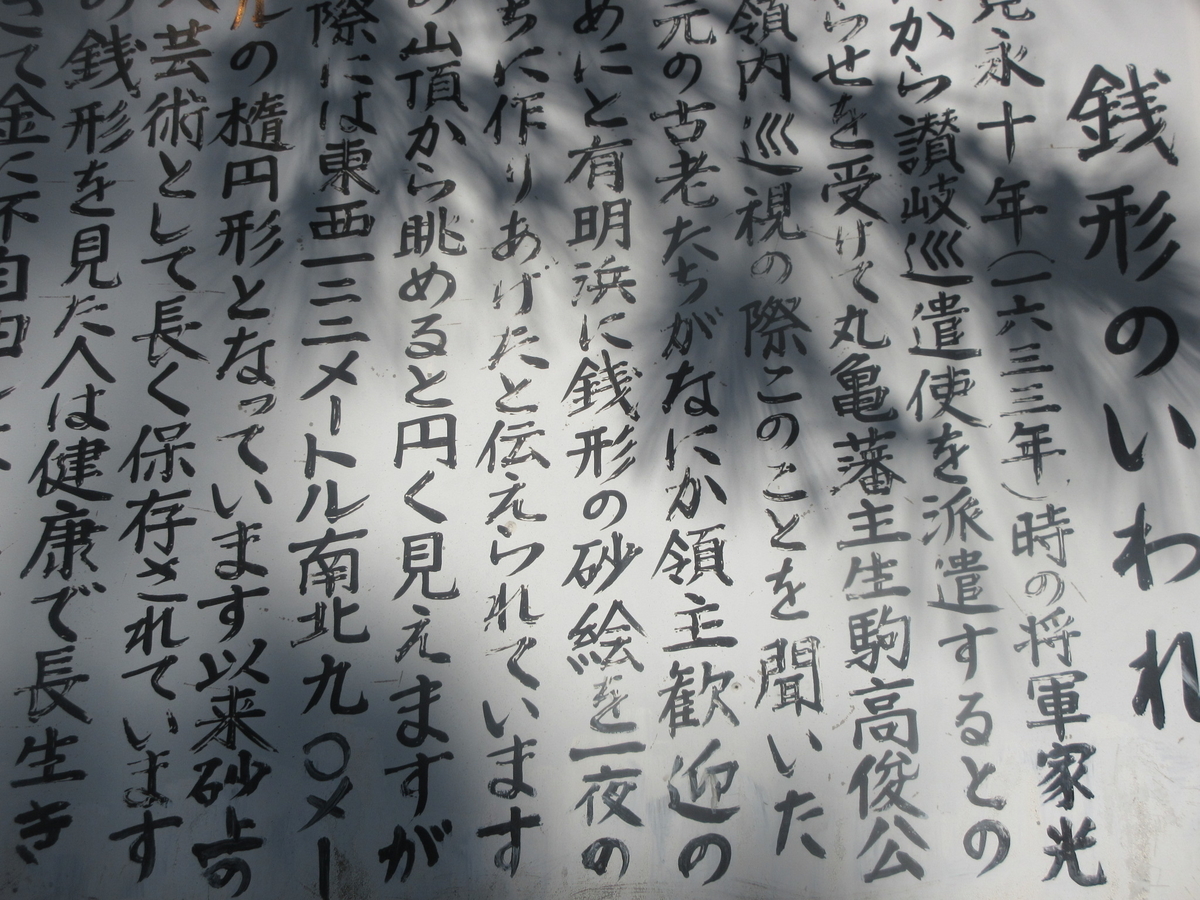 銭形のいわれ
永十年（一六三三年）時の将軍家光
から讃岐巡遣使を派遣するとの
らせを受けて丸亀藩主生駒高俊公
領内巡視の際このことを聞いた
元の古老たちがなにか領主歓迎の
めにと有明浜に銭形の砂絵を一夜の
ちに作りあげたと伝えられています
の山頂から眺めると円く見えますが
際には東西一二二メートル南北九〇メー
ルの楕円形となっています以来砂上の
芸術として長く保存されています
の銭形を見た人は健康で長生き
さて金に不自由し